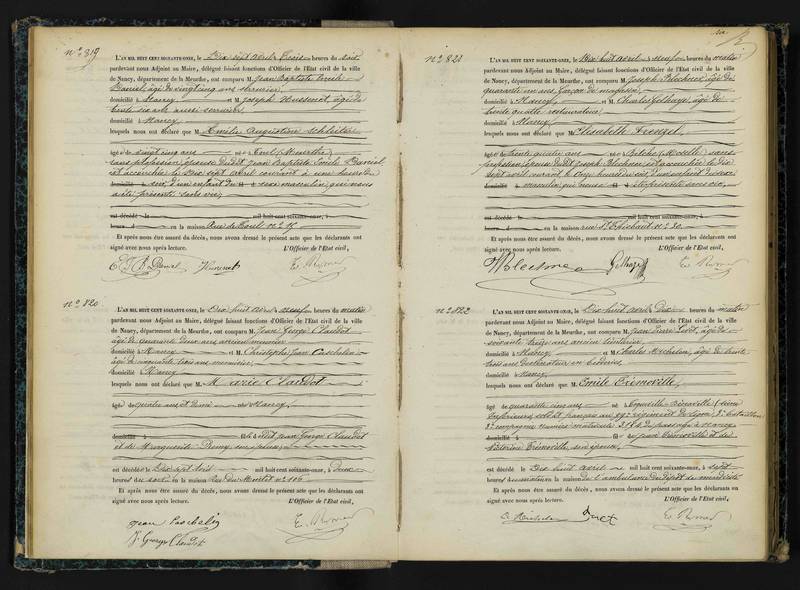 nº 819
L'AN MIL HUIT CENT SOIXANTE-ONZE, le Dix sept avril trois heures du soir
pardevant nous Adjoint au Maire, délégué faisant fonctions d'Officier de l'Etat civil de la ville
de Nancy, département de la Meurthe, ont comparu M. Jean Baptiste Emile
Daniel, âgé de vingt cinq ans serrurier
domicilié à Nancy et Joseph âgé de
trente six ans aussi serrurier
domicilié à Nancy
lesquels nous ont déclaré que M. Emilie Augustine
âgé de vingt cinq ans né à Toul (Meurthe)
sans profession épouse dudit Jean Baptiste Emile Daniel
est accouchée le Dix sept avril courant à une heure du
domicilié à soir, d'un enfant du sexe masculin qui nous
a été présenté sans vie
est décédé le mil huit cent soixante-onze, à
heure d en la maison Rue de Toul nº 15
Et après nous être assuré du décès, nous avons dressé le présent acte que les déclarants ont
signé avec nous après lecture. L'Officier de l'Etat civil,
E J B Daniel
nº 820
L'AN MIL HUIT CENT SOIXANTE-ONZE, le Dix huit avril neuf heures du matin
pardevant nous Adjoint au Maire, délégué faisant fonctions d'Officier de l'Etat civil de la ville
de Nancy, département de la Meurthe, ont comparu M. Jean George Claudot
âgé de quarante deux ans ancien
domicilié à Nancy et M. Christophe Jean Paschelin
âgé de cinquante trois ans menuisier
domicilié à Nancy
lesquels nous ont déclaré que M. Marie Claudot
âgé de quatre ans et demi née à Nancy,
domicilié à fille dudit Jean George Claudot
et de Marguerite Remy son épouse
est décédé le Dix sept avril mil huit cent soixante-onze, à
heures du soir en la maison Rue du Montet nº 106
Et après nous être assuré du décès, nous avons dressé le présent acte que les déclarants ont
signé avec nous après lecture. L'Officier de l'Etat civil,
jean Paschelin
J. George Claudot
nº 821
L'AN MIL HUIT CENT SOIXANTE-ONZE, le Dix huit avril neuf heures du matin
pardevant nous Adjoint au Maire, délégué faisant fonctions d'Officier de l'Etat civil de la ville
de Nancy, département de la Meurthe, ont comparu M. Joseph âgé de
quarante un ans garçon de magasin
domicilié à Nancy, et Charles âgé de
trente quatre restaurateur
domicilié à Nancy
lesquels nous ont déclaré que M. Elisabeth Frenzel,
âgé de trente quatre ans née à Bitche (Moselle) sans
profession épouse dudit Joseph est accouchée le dix
sept avril courant à onze heures du soir d'un enfant du sexe
domicilié à masculin qui nous a été présenté sans vie,
est décédé le mil huit cent soixante-onze, à
heure d en la maison rue St Thiébaut nº 30
Et après nous être assuré du décès, nous avons dressé le présent acte que les déclarants ont
signé avec nous après lecture. L'Officier de l'Etat civil,
nº 822
L'AN MIL HUIT CENT SOIXANTE-ONZE, le Dix huit avril Dix heures du matin
pardevant nous Adjoint au Maire, délégué faisant fonctions d'Officier de l'Etat civil de la ville
de Nancy, département de la Meurthe, ont comparu M. Jean Pierre âgé de
soixante treize ans ancien
domicilié à Nancy, et Charles Michelin, âgé de trente
trois ans
domicilié à Nancy
lesquels nous ont déclaré que M. Emile Trémoville,
âgé de quarante cinq ans né à (Seine
Inférieure) soldat français au régiment de ligne 3e bataillon
compagnie numéro matricule de passage à Nancy
domicilié à de Jean Trémoville et de
Victorine Trémoville son épouse,
est décédé le Dix huit avril mil huit cent soixante-onze, à sept
heures du matin en la maison de l'ambulance du dépôt de mendicité
Et après nous être assuré du décès, nous avons dressé le présent acte que les déclarants ont
signé avec nous après lecture. L'Officier de l'Etat civil,